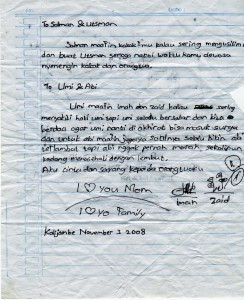 To Salman & Utsman
Salman maafin kakak imu kalau sering
dan buat Utsman semoga nanti waktu kamu dewasa
nyenengin kakak dan orangtua.
To Umi & Abi
Umi maafin imah dan zaid kalau sering
menyakiti hati umi tapi umi selalu bersabar dan bisa
berdoa agar umi nanti di akhirat bisa masuk surga
dan untuk abi maafin
terlambat tapi abi nggak pernah marah sekalipun
kadang marah kali dengan lembut.
Aku cinta dan sayang kepada orangtuaku
I ♡ You Mom
I ♡ Yo Family
Imah Zaid
November 3 2008